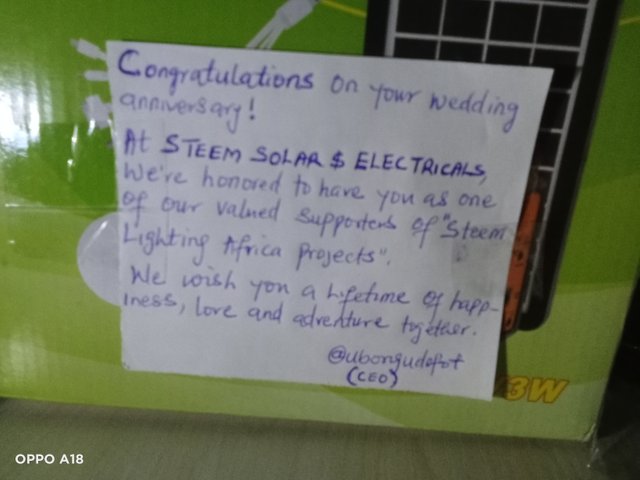 Congratulations on your wedding
anniversary!
At STEEM SOLAR $ ELECTRICALS,
We're honored to have you as one
of our valued supporters of "Steem
Lighting Africa projects".
We wish you a lifetime of happ-
iness, love and adventure together.
@ubongudofot
(CEO)
3W
OPPO A18